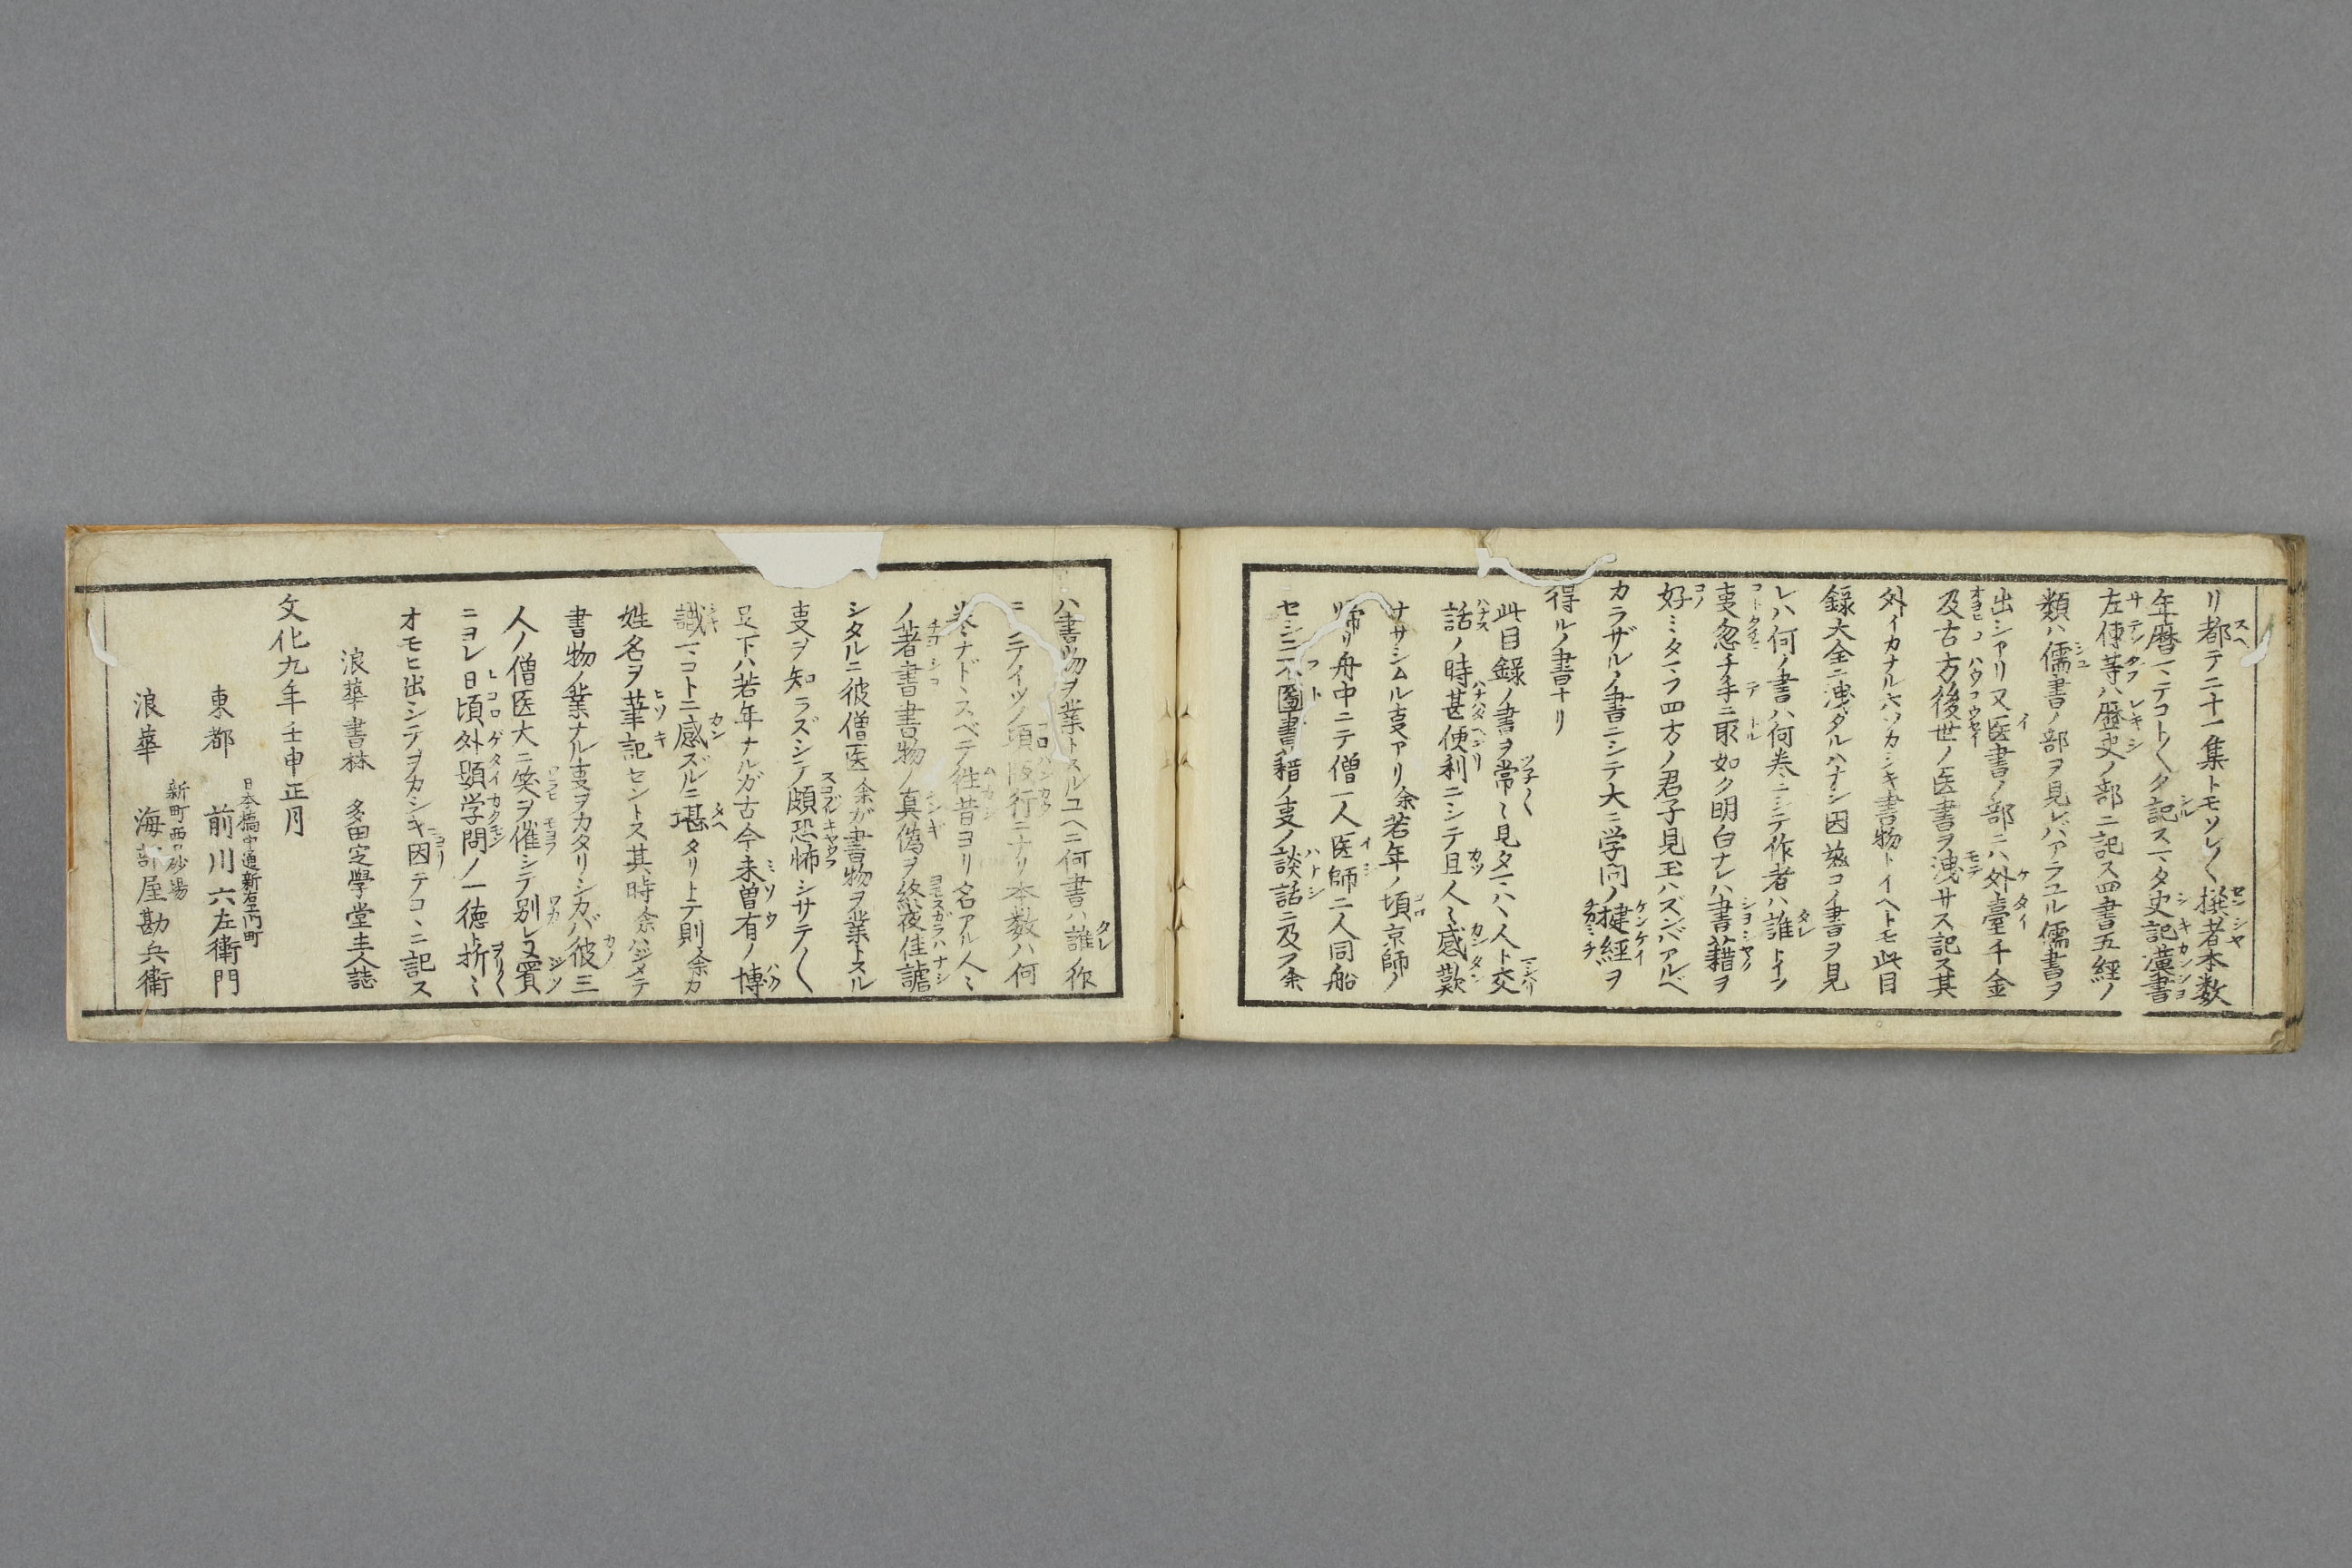 リ都テ二十一集トモソレ〱撰者本数
年暦マテコト〱ク記スマタ史記漢書
左傳等ハ歴史ノ部ニ記ス四書五経ノ
類ハ儒書ノ部ヲ見レバアラユル儒書ヲ
出シアリ又医書ノ部ニハ外臺千金
及古方後世ノ医書ヲ洩サス記ス其
外イカナル六ツカシキ書物トイヘトモ此目
録大全ニ洩ダルハナシ因茲コイ書ヲ見
レハ何ノ書ハ何巻ニシテ作者ハ誰トイフ
叓忽チ手ニ取如ク明白ナレハ書籍ヲ
好ミタマフ四方ノ君子見玉ハズンバアルベ
カラザルノ書ニシテ大ニ学問ノ揵経ヲ
得ルノ書ナリ
此目録ノ書ヲ常〻見タマハヾ人ト交
話ノ時甚便利ニシテ且人〻感歎
ナサシムル叓アリ余若年ノ頃京師ノ
帰リ舟中ニテ僧一人医師二人同船
セシニ不圖書籍ノ叓ノ談話ニ及フ余
ハ書物ヲ業トスルユヘニ何書ハ誰ノ作
ニ〆イツノ頃阪行ニナリ本数ハ何
巻ナドヽスベテ徃昔ヨリ名アル人〻
ノ著書書物ノ真偽ヲ終夜佳譚
シタルニ彼僧医余ガ書物ヲ業トスル
叓ヲ知ラズシテ頗恐怖シサテ〱
足下ハ若年ナルガ古今未曽有ノ博
識マコトニ感ズルニ堪タリトテ則余カ
姓名ヲ筆記セントス其時余ハジメテ
書物ノ業ナル叓ヲカタリシカバ彼三
人ノ僧医大ニ笑ヲ催シテ別レヌ實
ニコレ日頃外題学問ノ一徳折〻
オモヒ出シテヲカシキ因テコヽニ記ス
浪華書林 多田定學堂主人誌
文化九年壬申正月
東都 日本橋中通新右エ門町 前川六左衛門
浪華 新町西口砂場 海部屋勘兵衛